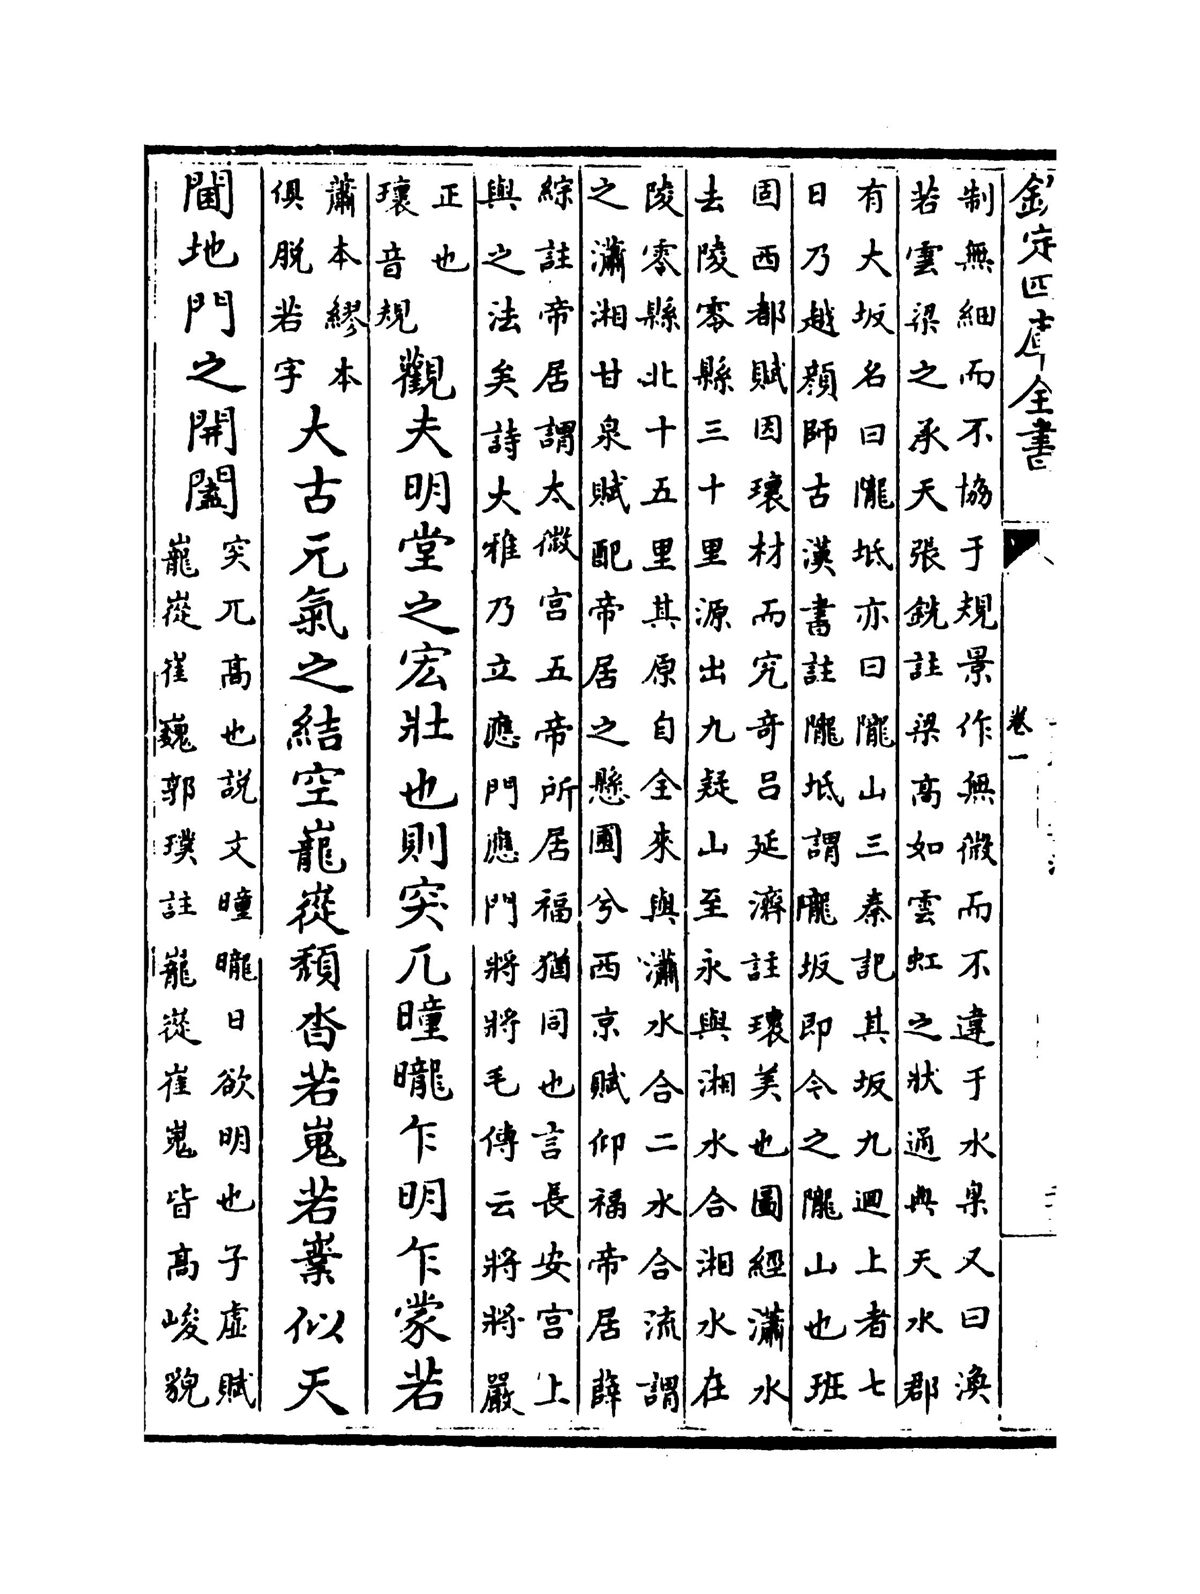 欽定四庫全書
卷一
制無細而不協于規景作無微而不違于水臬又曰渙
若雲梁之承天張銑註梁高如雲虹之狀通典天水郡
有大坂名曰隴坻亦曰隴山三秦記其坂九迴上者七
日乃越顔師古漢書註隴坻謂隴坂即今之隴山也班
固西都賦因瓌材而究奇呂延濟註瓌美也圖經瀟水
去陵零縣三十里源出九疑山至永與湘水合湘水在
陵零縣北十五里其原自全來與瀟水合二水合流謂
之瀟湘甘泉賦配帝居之懸圃兮西京賦仰福帝居薛
綜註帝居謂太微宫五帝所居福猶同也言長安宫上
與之法矣詩大雅乃立應門應門將將毛傳云將將嚴
正也
瓌音規
觀夫明堂之宏壯也則突兀曈曨乍明乍蒙若
蕭本繆本
俱脱若字
大古元氣之結空巃嵸頹沓若嵬若嶪似天
閫地門之開闔
突兀高也説文曈曨日欲明也子虛賦
巃嵸崔巍郭璞註巃嵸崔嵬皆高峻貌